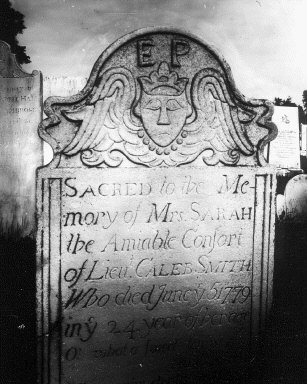 E P
SACRED to the Me-
mory of Mrs. SARAH
the Amiable Confort
of Lieut. CALEB SMITH
Who died Janry. 5 1779
in ye 24 year of her age